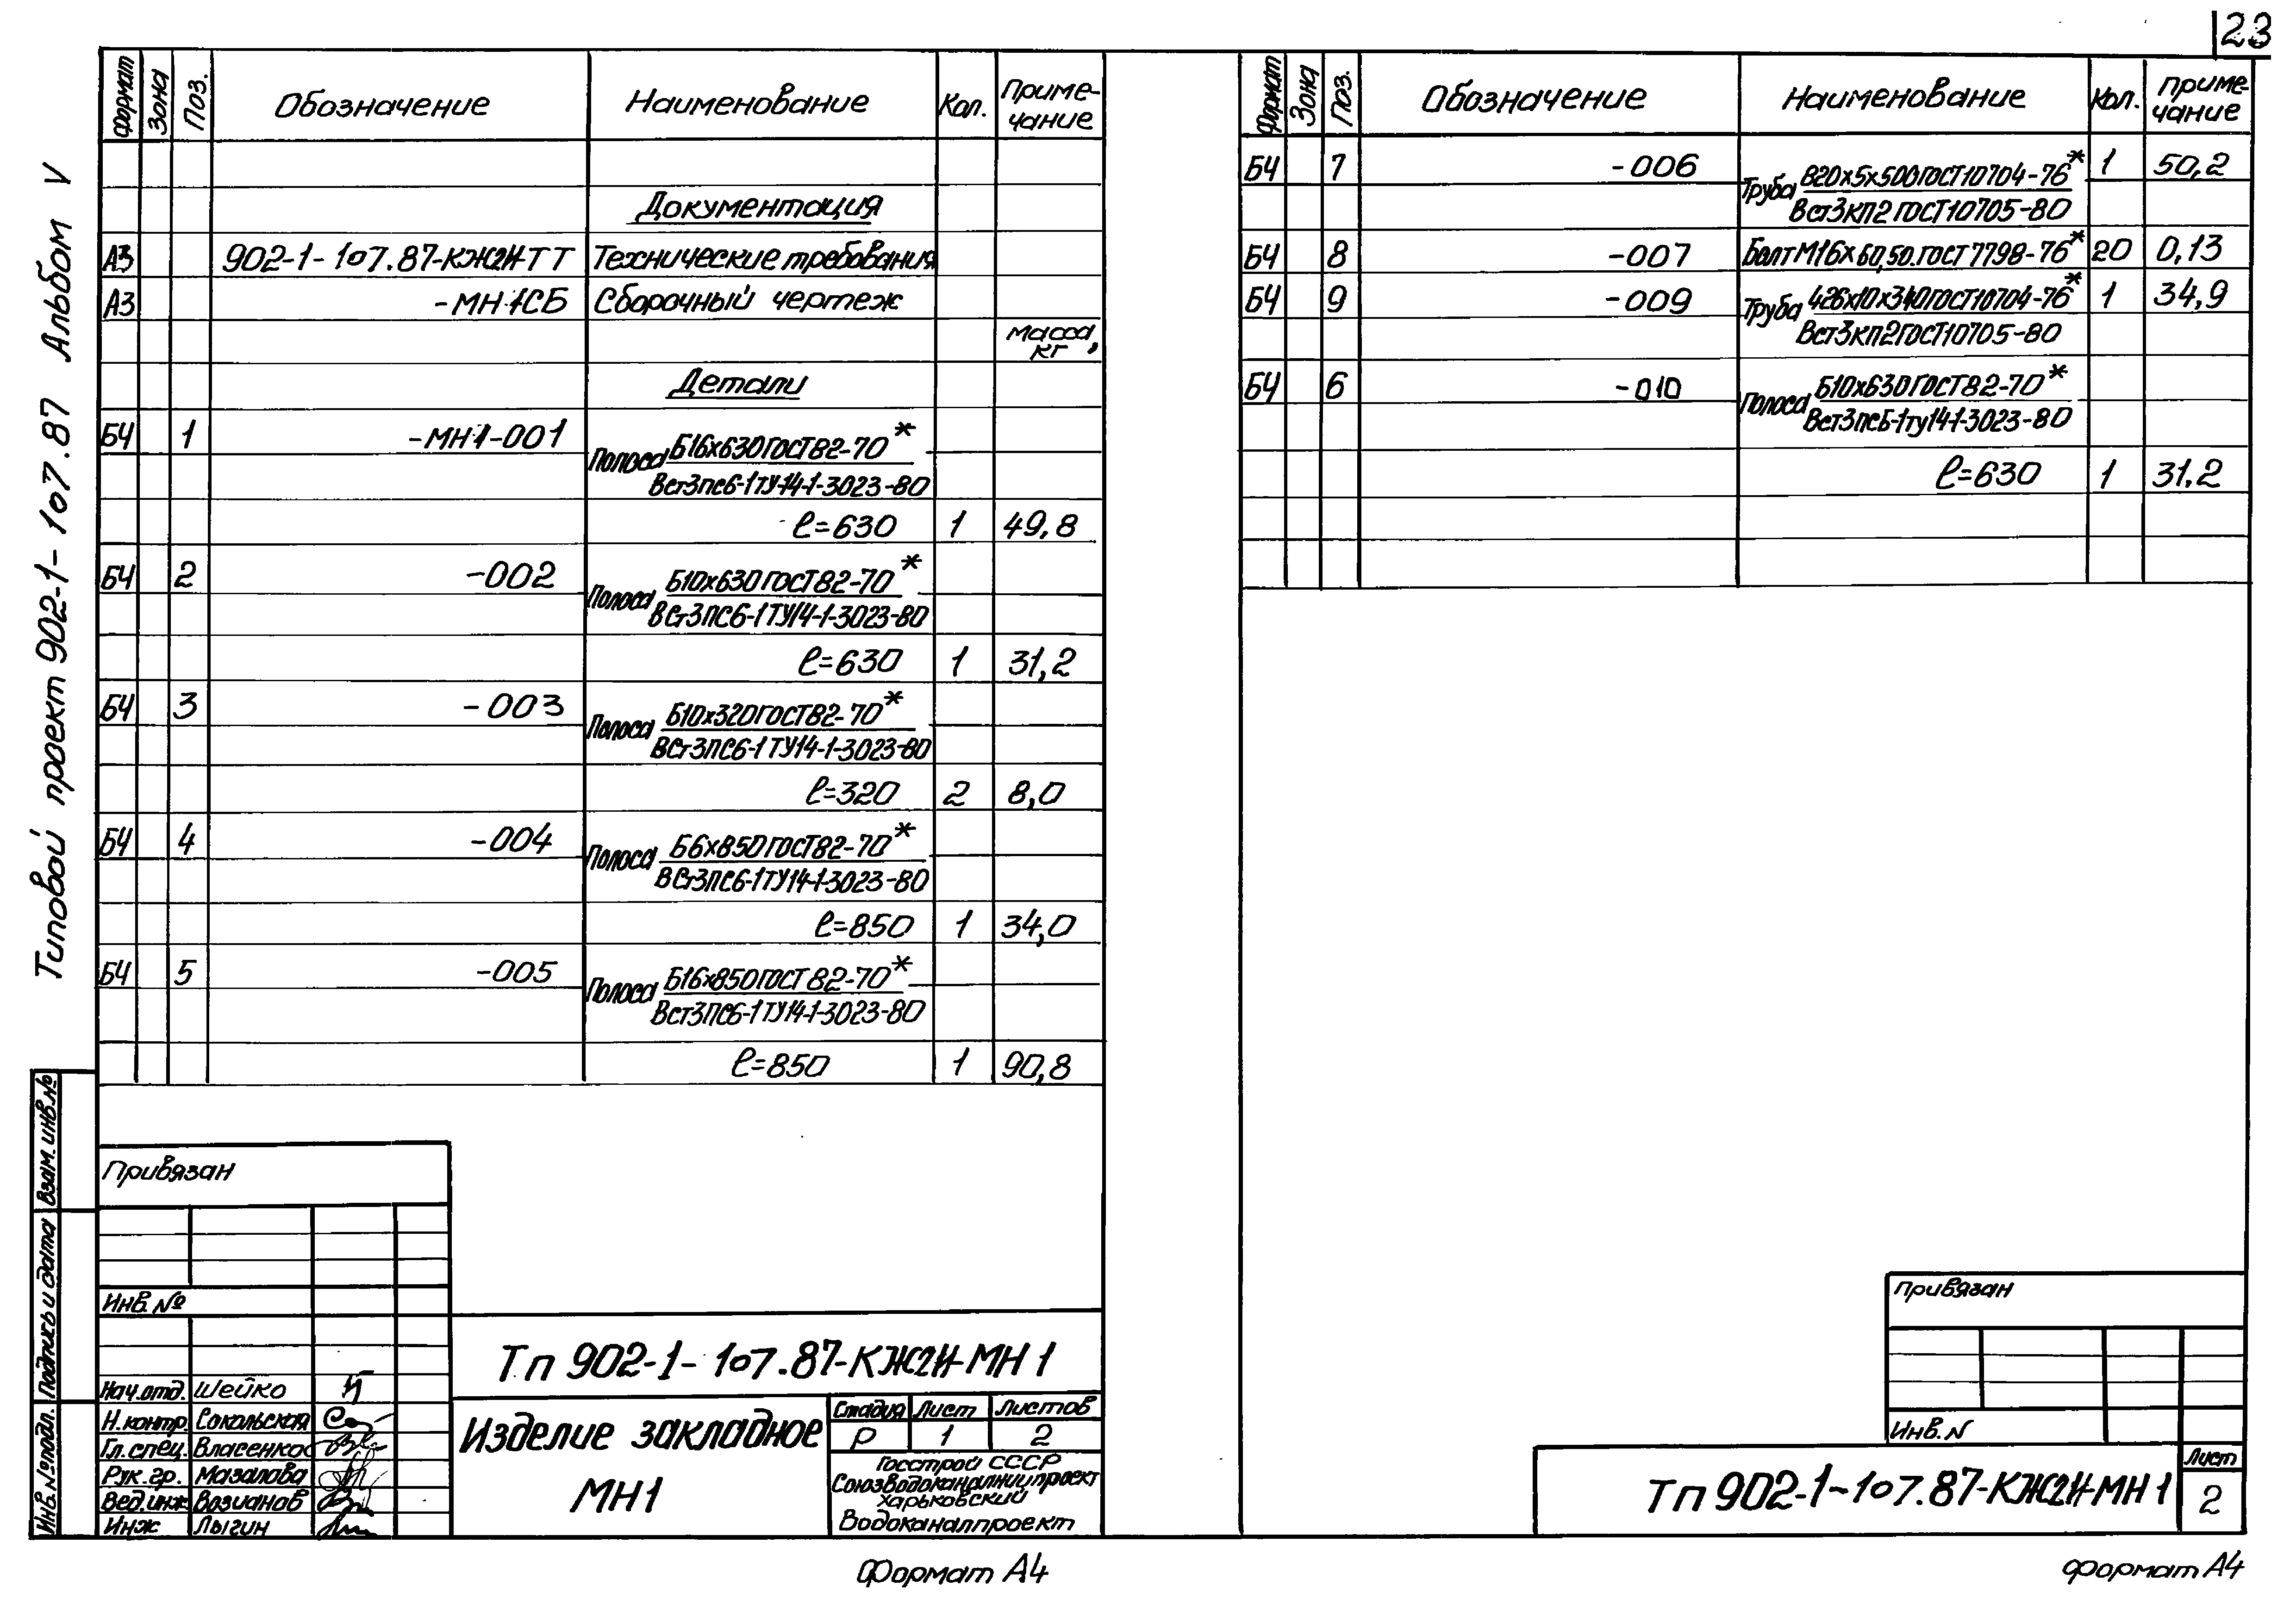 23
Типовой проект 902-1-107.87 Альбом V
Формат Зона Поз. Обозначение Наименование Кол. Приме-
чание
Документация
А3 902-1-107.87-КЖ2И-ТТ Технические требования
А3 -МН1СБ Сборочный чертеж
масса,
кг
Детали
БЧ 1 -МН1-001 Полоса Б16х630ГОСТ82-70*
Вст3пс6-1ТУ14-1-3023-80
ℓ=630 1 49,8
БЧ 2 -002 Полоса Б10х630ГОСТ82-70*
ВСт3ПС6-1ТУ14-1-3023-80
ℓ=630 1 31,2
БЧ 3 -003 Полоса Б10х320ГОСТ82-70*
ВСт3ПС6-1ТУ14-1-3023-80
ℓ=320 2 8,0
БЧ 4 -004 Полоса Б6х850ГОСТ82-70*
ВСт3ПС6-1ТУ14-1-3023-80
ℓ=850 1 34,0
БЧ 5 -005 Полоса Б16х850ГОСТ82-70*
Вст3ПС6-1ТУ14-1-3023-80
ℓ=850 1 90,8
Привязан
Инв.№
Нач.отд. Шейко
Н.контр. Сокольская
Гл.спец. Власенко
Рук.гр. Мазалова
Вед.инж Возианов
Инж Лыгин
Тп 902-1-107.87-КЖ2И-МН1
Изделие закладное
МН1
Стадия Лист Листов
Р 1 2
Госстрой СССР
Союзводоканалниипроект
Харьковский
Водоканалпроект
Взам. инв.№
Подпись и дата
Инв.№подл.
Формат А4
Формат Зона Поз. Обозначение Наименование Кол. Приме-
чание
БЧ 7 -006 Труба 820х5х500ГОСТ10704-76* 1 50,2
Вст3кп2ГОСТ10705-80
БЧ 8 -007 Болт М16х60,50.ГОСТ7798-76* 20 0,13
БЧ 9 -009 Труба 426х10х340ГОСТ10704-76* 1 34,9
Вст3кп2ГОСТ10705-80
БЧ 6 -010 Полоса Б10х630ГОСТ82-70*
Вст3пс6-1ту14-1-3023-80
ℓ=630 1 31,2
Привязан
Инв.N
Тп 902-1-107.87-КЖ2И-МН1
Лист
2
Формат А4